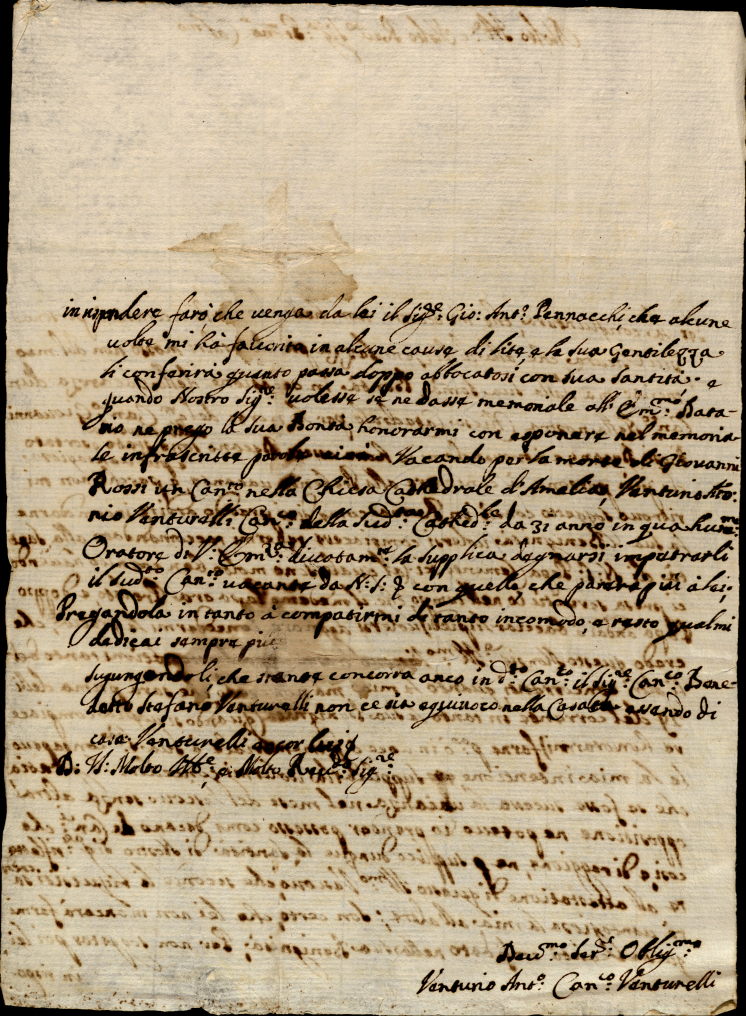 in rispondere farò, che venga da lei il Sigre: Gio: Anto: Pennacchi, che alcune
volte mi hà favorito in alcune cause di lite, e la sua Gentilezza
li conferirà quanto passa doppo abbocatosi con sua Santità. e
quando Nostro Sigre: volesse se ne dasse memoriale all' Emmo: Data-
rio ne prego la sua Bontà honorarmi con esponere nel memoria-
le infrascritte parole Vacando per la morte di Giovanni
Rossi un Canco: nella Chiesa Cathedrale d'Amelia, Venturio Anto-
nio Venturelli Canco: della sudta: Cathedle: da 31 anno in qua humo:
Oratore di V: Emza: divotamte: la supplica degnarsi impetrarli
il sudto: Canco: vacante da N: S: & con quello, che parerà più à lei;
Pregandola in tanto à compatirmi di tanto incomodo, e resto qual mi
dedicai sempre più
sugungendoli, che stante concorra anco in dto: Canco: il Sigre: Canco: Bene-
detto Stefano Venturelli non ce sia equivoco nella Casata essendo di
casa Venturelli ancor lui
D: V: Molto Illre: e Molto Revda: Sigre:
Devmo: Ser: Obligmo:
Venturio Anto: Canco: Venturelli